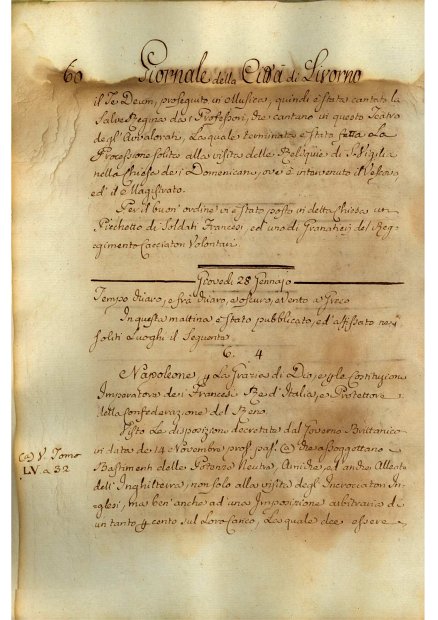 60 Giornale della Città di Livorno
il Te Deum, proseguito in Musica, quindi è stata cantata la
Salve Regina da i Professori, che cantano in questo Teatro
degl' Avvalorati, la quale terminata è stata fatta la
Processione solita alla visita delle Reliquie di S. Giulia
nella Chiesa dei Domenicani, ove è intervenuto il Vescovo
ed' il Magistrato.
Per il buon' ordine vi è stato posto in detta Chiesa un
Picchetto di Soldati Francesi, ed uno di Granatieri del Reg-
gimento Cacciatori Volontari
Giovedì 28 Gennajo
Tempo vario, e frà vario, e oscuro, e vento a Greco
In questa mattina è stato pubblicato, ed' affissato nei
soliti Luoghi il Seguente
C. 4
Napoleone, p la Grazia di Dio, e p le Costituzioni
Imperatore dei Francesi Re d' Italia, e Protettore
della Confederazione del Reno.
Visto le disposizioni decretate dal Governo Brittanico
in data de 14 Novembre pros. pas. (a) che assoggettano
Bastimenti delle Potenze Neutre, Amiche, ed' anche Alleate
dell' Inghilterra, non solo alla visita degl' Incrociatori In-
glesi, ma ben' anche ad' una Imposizione arbitraria di
un tanto p cento sul Loro Carico, la quale dee essere
(a) V. Tomo
LV. a 32